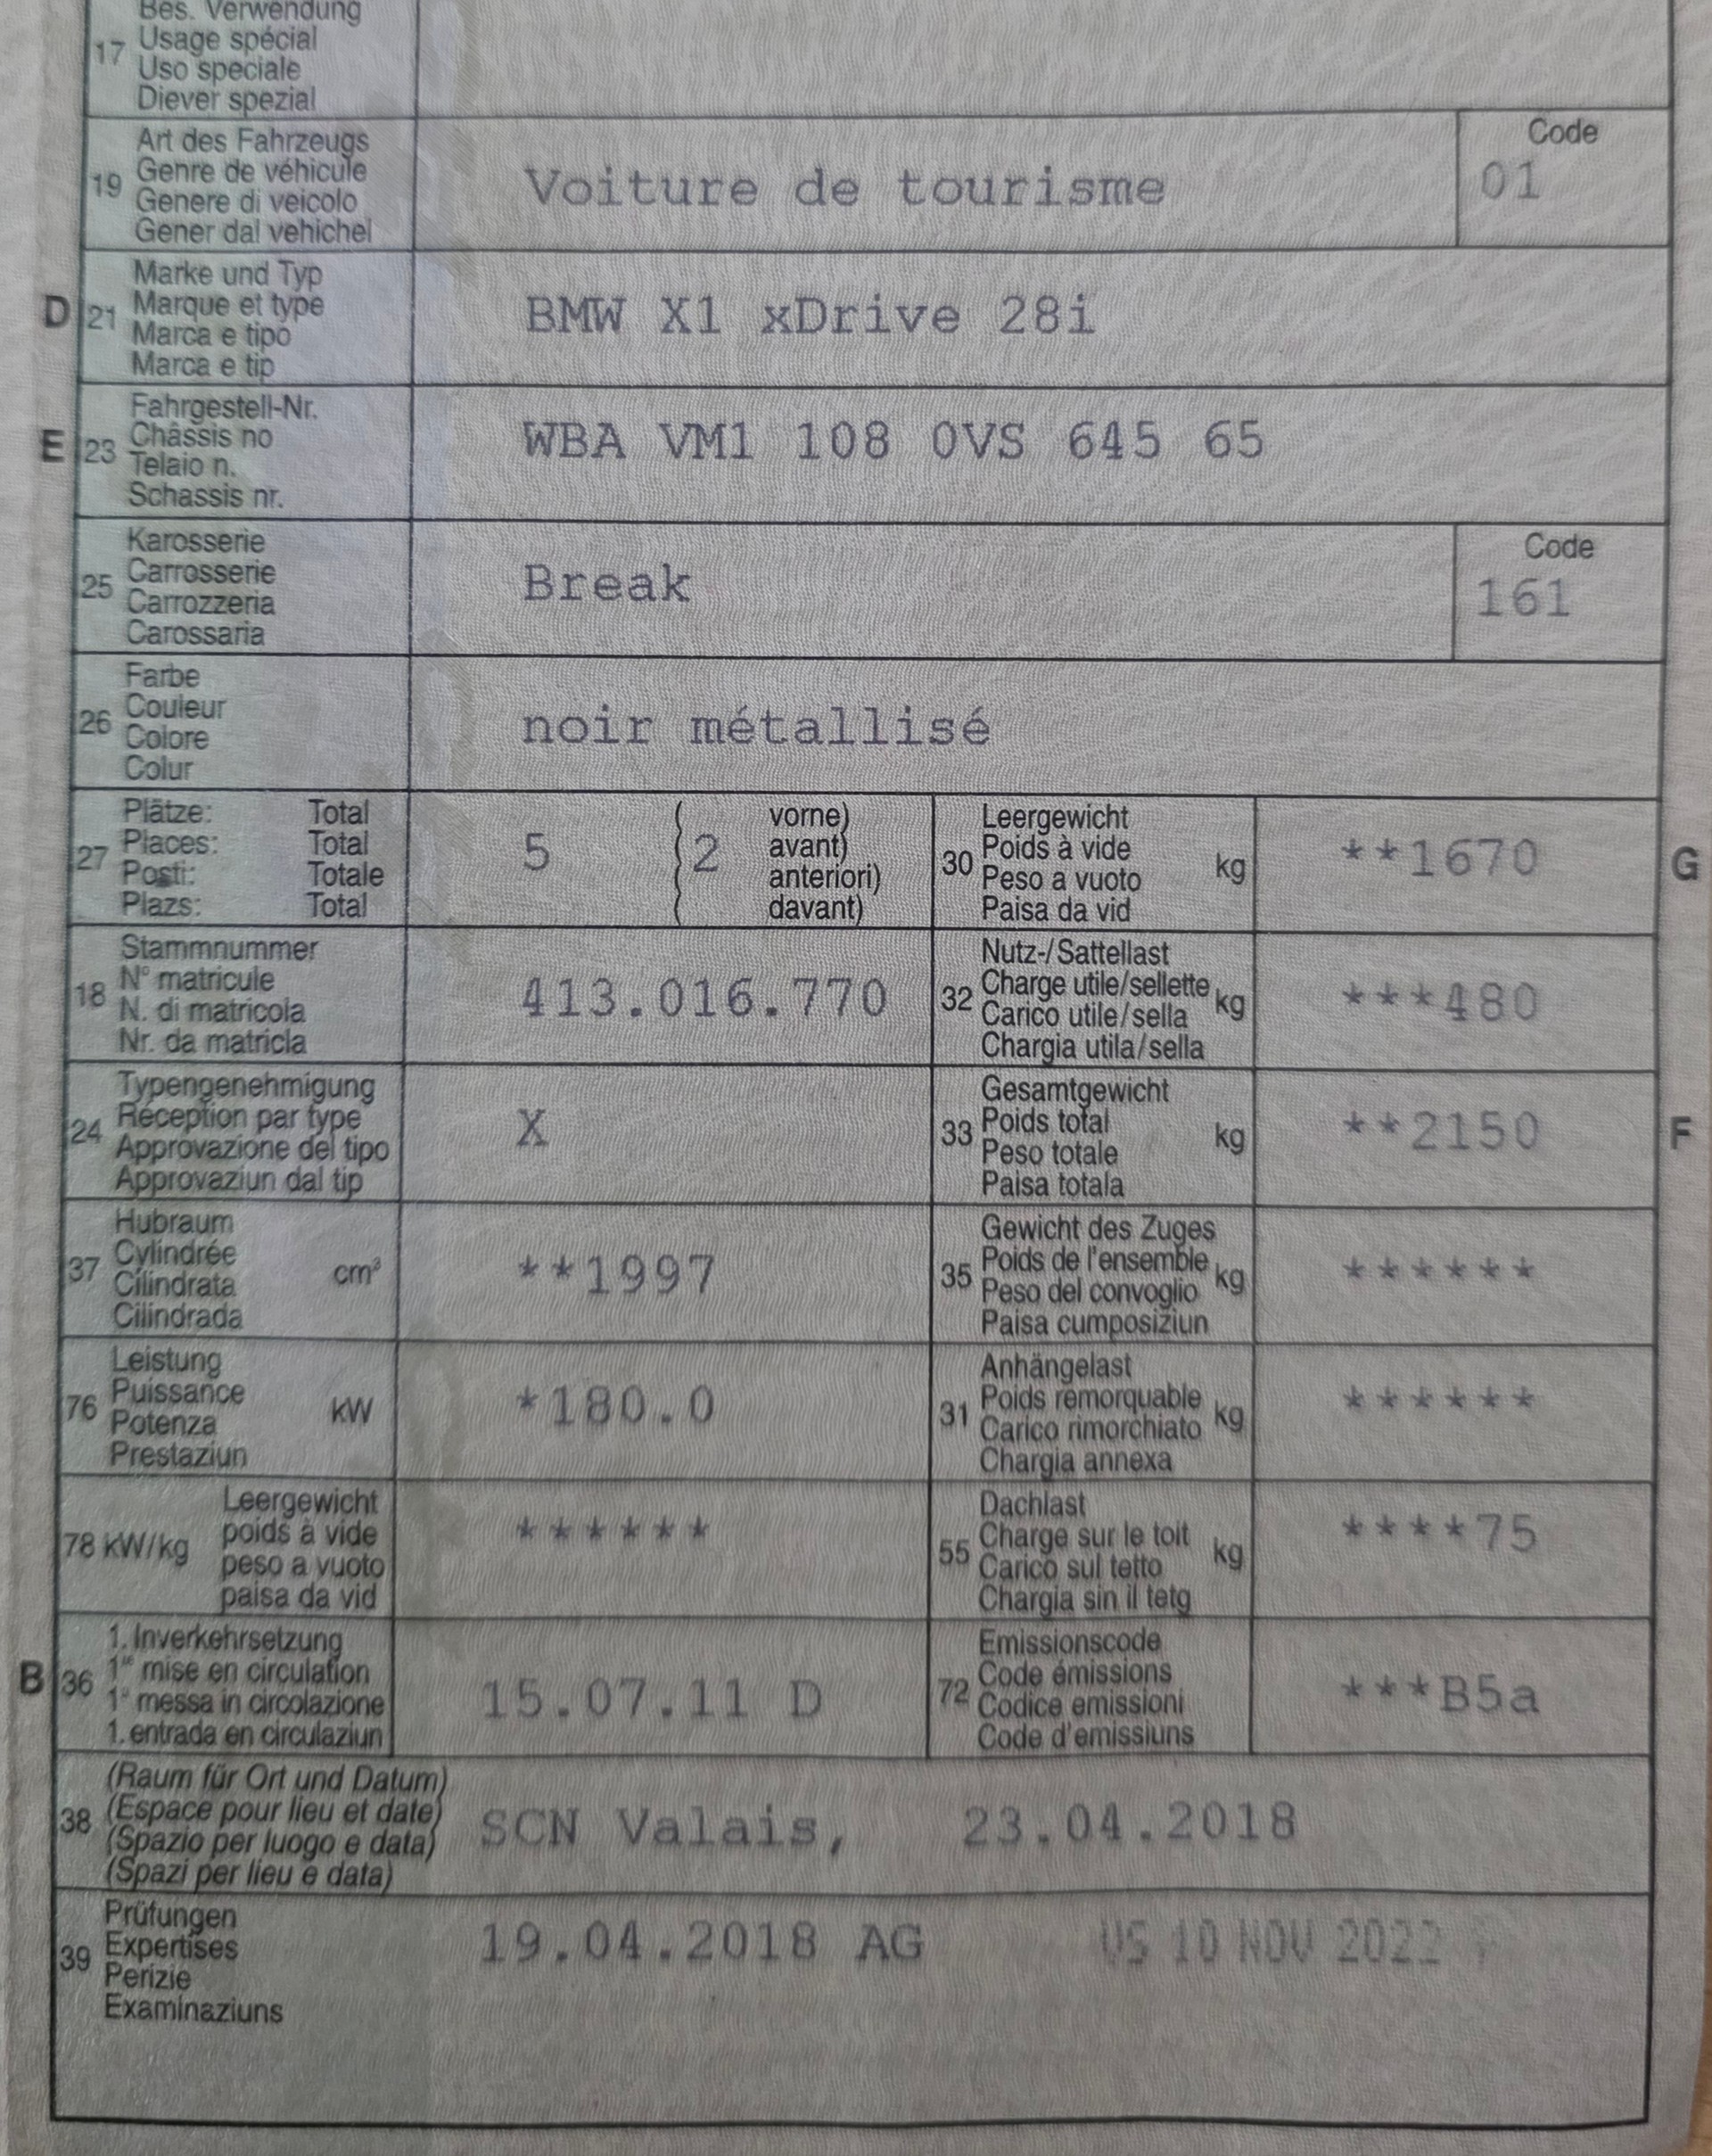 Bes. Verwendung
17 Usage spécial
Uso speciale
Diever spezial
Art des Fahrzeugs
19 Genre de véhicule
Genere di veicolo
Gener dal vehichel
Voiture de tourisme
Code
01
Marke und Typ
D 21 Marque et type
Marca e tipo
Marca e tip
BMW X1 xDrive 28i
Fahrgestell-Nr.
E 23 Châssis no
Telaio n.
Schassis nr.
WBA VM1 108 0VS 645 65
Karosserie
25 Carrosserie
Carrozzeria
Carossaria
Break
Code
161
Farbe
26 Couleur
Colore
Colur
noir métallisé
Plätze: Total
27 Places: Total
Posti: Totale
Plazs: Total
5 ( 2 vorne)
avant)
anteriori)
davant)
Leergewicht
30 Poids à vide kg
Peso a vuoto
Paisa da vid
**1670 G
Stammnummer
18 N° matricule
N. di matricola
Nr. da matricla
413.016.770
Nutz-/Sattellast
32 Charge utile/sellette kg
Carico utile/sella
Chargia utila/sella
***480
Typengenehmigung
24 Réception par type
Approvazione del tipo
Approvaziun dal tip
X
Gesamtgewicht
33 Poids total kg
Peso totale
Paisa totala
**2150 F
Hubraum
37 Cylindrée cm³
Cilindrata
Cilindrada
**1997
Gewicht des Zuges
35 Poids de l'ensemble kg
Peso del convoglio
Paisa cumposiziun
******
Leistung
76 Puissance kW
Potenza
Prestaziun
*180.0
Anhängelast
31 Poids remorquable kg
Carico rimorchiato
Chargia annexa
******
Leergewicht
78 kW/kg poids à vide
peso a vuoto
paisa da vid
******
Dachlast
55 Charge sur le toit kg
Carico sul tetto
Chargia sin il tetg
****75
1. Inverkehrsetzung
B 36 1re mise en circulation
1a messa in circolazione
1. entrada en circulaziun
15.07.11 D
Emissionscode
72 Code émissions
Codice emissioni
Code d'emissiuns
***B5a
(Raum für Ort und Datum)
38 (Espace pour lieu et date)
(Spazio per luogo e data)
(Spazi per lieu e data)
SCN Valais, 23.04.2018
Prüfungen
39 Expertises
Perizie
Examinaziuns
19.04.2018 AG VS 10 NOV 2022